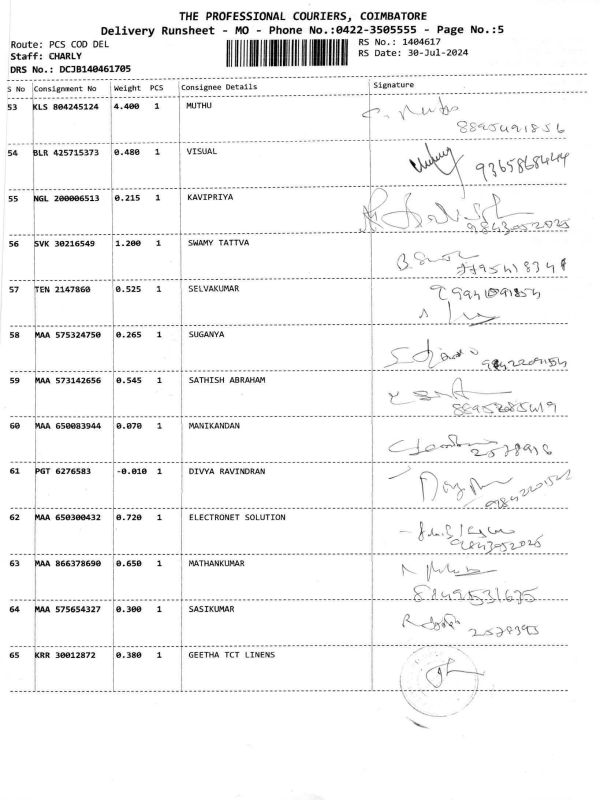 THE PROFESSIONAL COURIERS, COIMBATORE
Delivery Runsheet - MO - Phone No.:0422-3505555 - Page No.:5
Route: PCS COD DEL
RS No.: 1404617
Staff: CHARLY
RS Date: 30-Jul-2024
DRS No.: DCJB140461705
S No Consignment No Weight PCS Consignee Details Signature
53 KLS 804245124 4.400 1 MUTHU
8895491856
54 BLR 425715373 0.480 1 VISUAL
9365868444
55 NGL 200006513 0.215 1 KAVIPRIYA
9843052025
56 SVK 30216549 1.200 1 SWAMY TATTVA
7795418348
57 TEN 2147860 0.525 1 SELVAKUMAR
9941091854
58 MAA 575324750 0.265 1 SUGANYA
9842209154
59 MAA 573142656 0.545 1 SATHISH ABRAHAM
60 MAA 650083944 0.070 1 MANIKANDAN
2578916
61 PGT 6276583 -0.010 1 DIVYA RAVINDRAN
62 MAA 650300432 0.720 1 ELECTRONET SOLUTION
9843052025
63 MAA 866378690 0.650 1 MATHANKUMAR
64 MAA 575654327 0.300 1 SASIKUMAR
2578395
65 KRR 30012872 0.380 1 GEETHA TCT LINENS